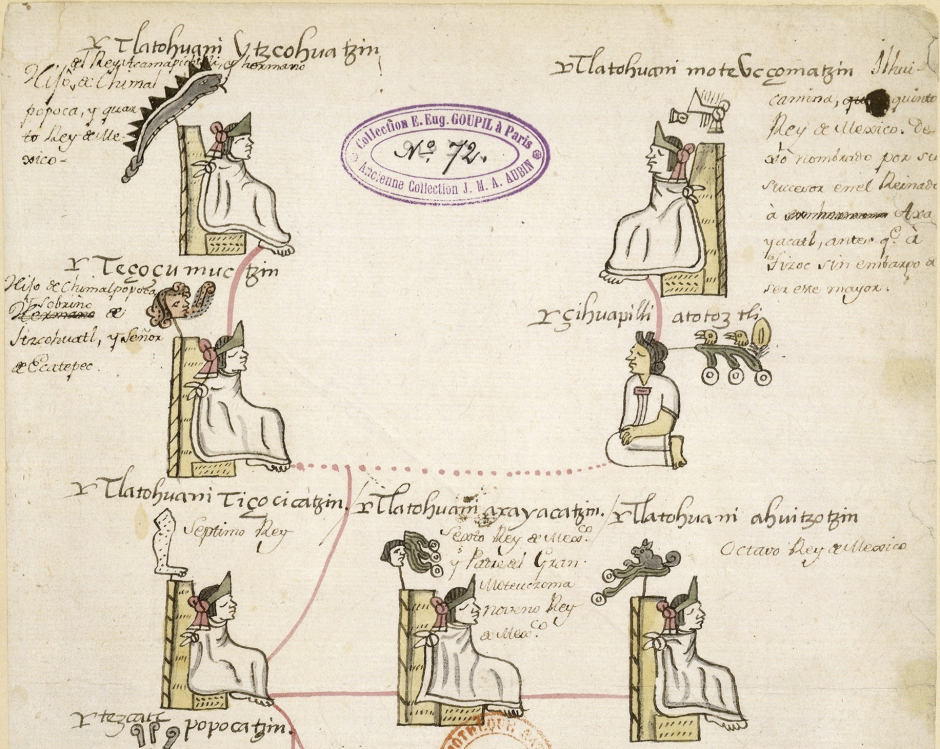 Tlatohuani ytzcohuatzin
hermano
Hijo de Chimal
popoca, y quar
to Rey de Me-
xico-
Collection E. Eug. GOUPIL à Paris
Nº 72.
Ancienne Collection J. M. A. AUBIN
Tlatohuani moteucçomatzin Ilhui-
camina, quinto
Rey de Mexico. De
nombrado por su
succesor en el Reinado
à Axa
yacatl, antes q.e à
Tizoc sin embargo d
ser este mayor.
Teçoçumuctzin
Hijo de Chimalpopoca
y Sobrino
Hermano de
Itzcohuatl, y Señor
de Ecatepec.
çihuapilli atotoztli
Tlatohuani Tiçoçicatzin.
Septimo Rey
Tlatohuani axayacatzin.
Sexto Rey de Mex.co
y Padre del Gran
Moteuczoma
noveno Rey
de Mex.co
Tlatohuani ahuitzotzin
Octavo Rey de Mexico
tezcatl popocatzin.